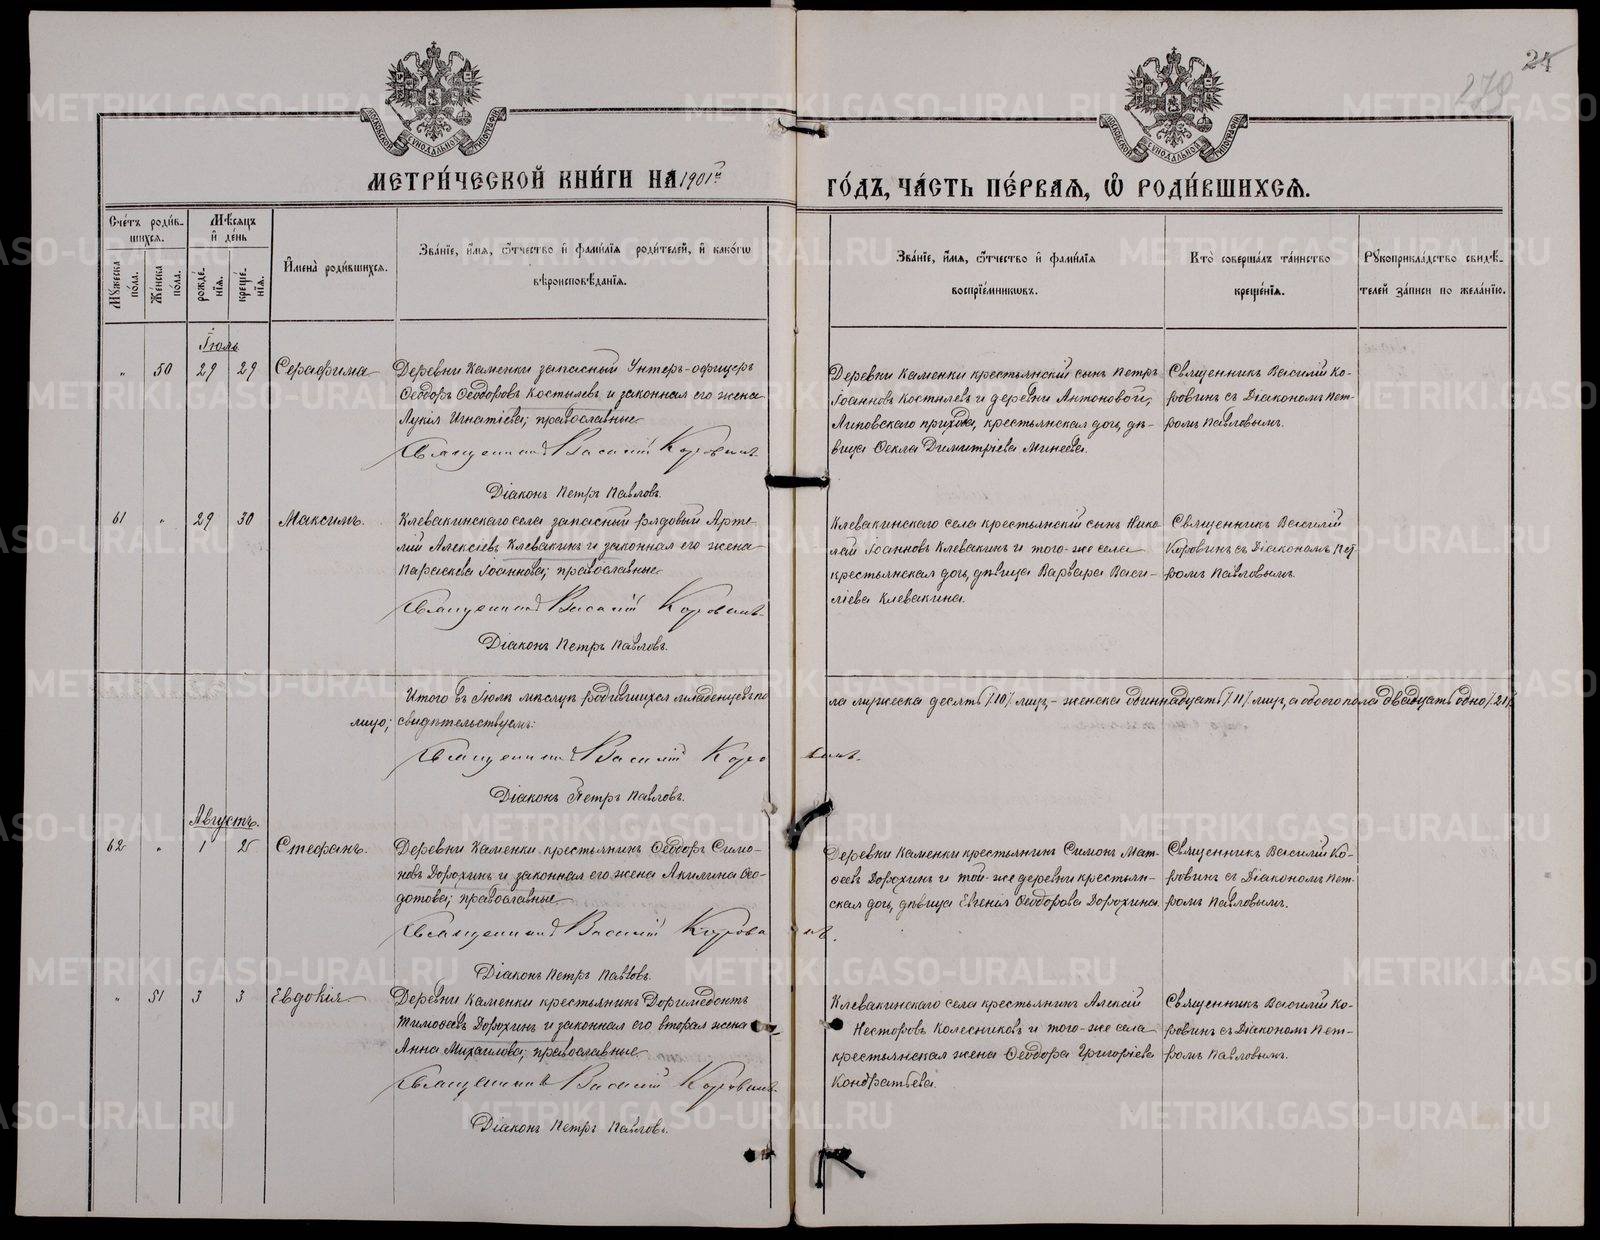 25
279
МЕТРИ́ЧЕСКОЙ КНИ́ГИ НА 1901й
ГО́ДЪ, ЧА́СТЬ ПЕ́РВАЯ, Ѡ҆ РОДИ́ВШИХСЯ.
Сче́тъ роди́в-
шихся.
Мꙋ́жеска по́ла.
Же́нска по́ла.
Мѣ́сяцъ
и҆ де́нь
рожде́-
нїя.
креще́-
нїя.
И҆мена̀ роди́вшихся.
Зва́нїе, и҆́мя, ѻ҆́тчество и҆ фами́лїя роди́телей, и҆ како́гѡ
вѣроисповѣ́данїя.
Зва́нїе, и҆́мя, ѻ҆́тчество и҆ фами́лїя
воспрїе́мникѡвъ.
Кто̀ соверша́лъ та́инство
креще́нїя.
Рꙋкоприкла́дство свидѣ́-
телей за́писи по жела́нїю.
Іюль
" 50 29 29 Серафима
Деревни Каменки запасный Унтеръ-офицеръ
Ѳеодоръ Ѳеодоровъ Костылевъ и законная его жена
Лукія Игнатіева; православные
Священникъ Василій Коровинъ
Діаконъ Петръ Павловъ.
Деревни Каменки крестьянскій сынъ Петръ
Іоанновъ Костылевъ и деревни Антоновой,
Липовскаго прихода, крестьянская дочь, дѣ-
вица Ѳекла Димитріева Минеева.
Священникъ Василій Ко-
ровинъ съ Діакономъ Пет-
ромъ Павловымъ.
61 " 29 30 Максимъ.
Клевакинскаго села запасный рядовый Арте-
мій Алексіевъ Клевакинъ и законная его жена
Параскева Іоаннова; православные
Священникъ Василій Коровинъ.
Діаконъ Петръ Павловъ.
Клевакинскаго села крестьянскій сынъ Нико-
лай Іоанновъ Клевакинъ и того-же села
крестьянская дочь, дѣвица Варвара Васи-
ліева Клевакина.
Священникъ Василій
Коровинъ съ Діакономъ Пет-
ромъ Павловымъ.
Итого въ Іюлѣ мѣсяцѣ родившихся младенцевъ по
ла мужеска десять /10/ лицъ, - женска одиннадцать /11/ лицъ, а обоего пола двадцать одно /21/
лицо; свидѣтельствуемъ:
Священникъ Василій Коровинъ.
Діаконъ Петръ Павловъ.
Августъ.
62 " 1 2 Стефанъ.
Деревни Каменки крестьянинъ Ѳеодоръ Симо-
новъ Дорохинъ и законная его жена Акилина Ѳео-
дотова; православные
Священникъ Василій Коровинъ.
Діаконъ Петръ Павловъ.
Деревни Каменки крестьянинъ Симонъ Мат-
ѳеевъ Дорохинъ и той-же деревни крестьян-
ская дочь, дѣвица Евгенія Ѳеодорова Дорохина.
Священникъ Василій Ко-
ровинъ съ Діакономъ Пет-
ромъ Павловымъ.
" 51 3 3 Евдокія
Деревни Каменки крестьянинъ Доримедонтъ
Тимоѳеевъ Дорохинъ и законная его вторая жена
Анна Михаилова; православные
Священникъ Василій Коровинъ.
Діаконъ Петръ Павловъ.
Клевакинскаго села крестьянинъ Алексій
Несторовъ Колесниковъ и того-же села
крестьянская жена Ѳеодора Григоріева
Кондратьева.
Священникъ Василій Ко-
ровинъ съ Діакономъ Пет-
ромъ Павловымъ.
METRIKI.GASO-URAL.RU